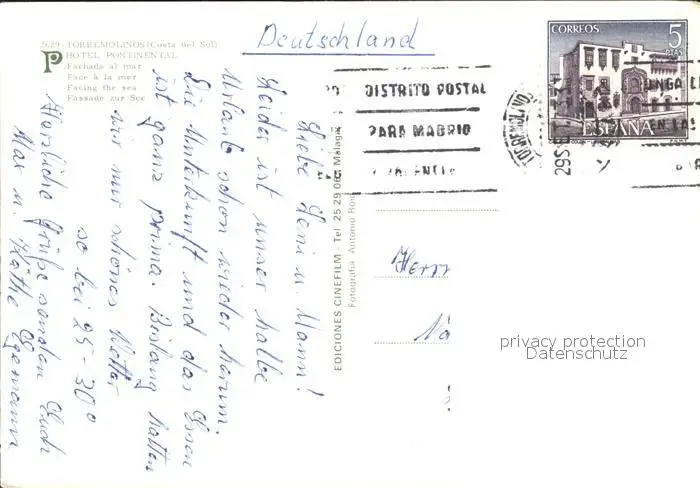 Deutschland
2629 - TORREMOLINOS (Costa del Sol)
HOTEL PONTINENTAL
Fachada al mar
Face à la mer
Facing the sea
Fassade zur See
CORREOS
5
PTAS
ESPAÑA
DISTRITO POSTAL
PARA MADRID
VALENCIA
TORREMOLINOS
29 S
Liebe Leni u. Mann!
Leider ist unser halbe
Urlaub schon wieder herum.
Die Unterkunft und das Essen
ist ganz prima. Bislang hatten
wir nur schönes Wetter
so bei 25-30°
Herzliche Grüße senden Euch
Max u. Käthe
EDICIONES CINEFILM - Tel 25 29 06 Málaga
Fotografía Antonio
Herrn
privacy protection
Datenschutz